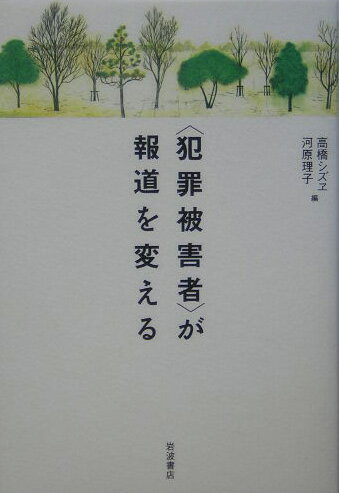 〈犯罪被害者〉が
報道を変える
高橋シズヱ
河原理子
編
岩波書店